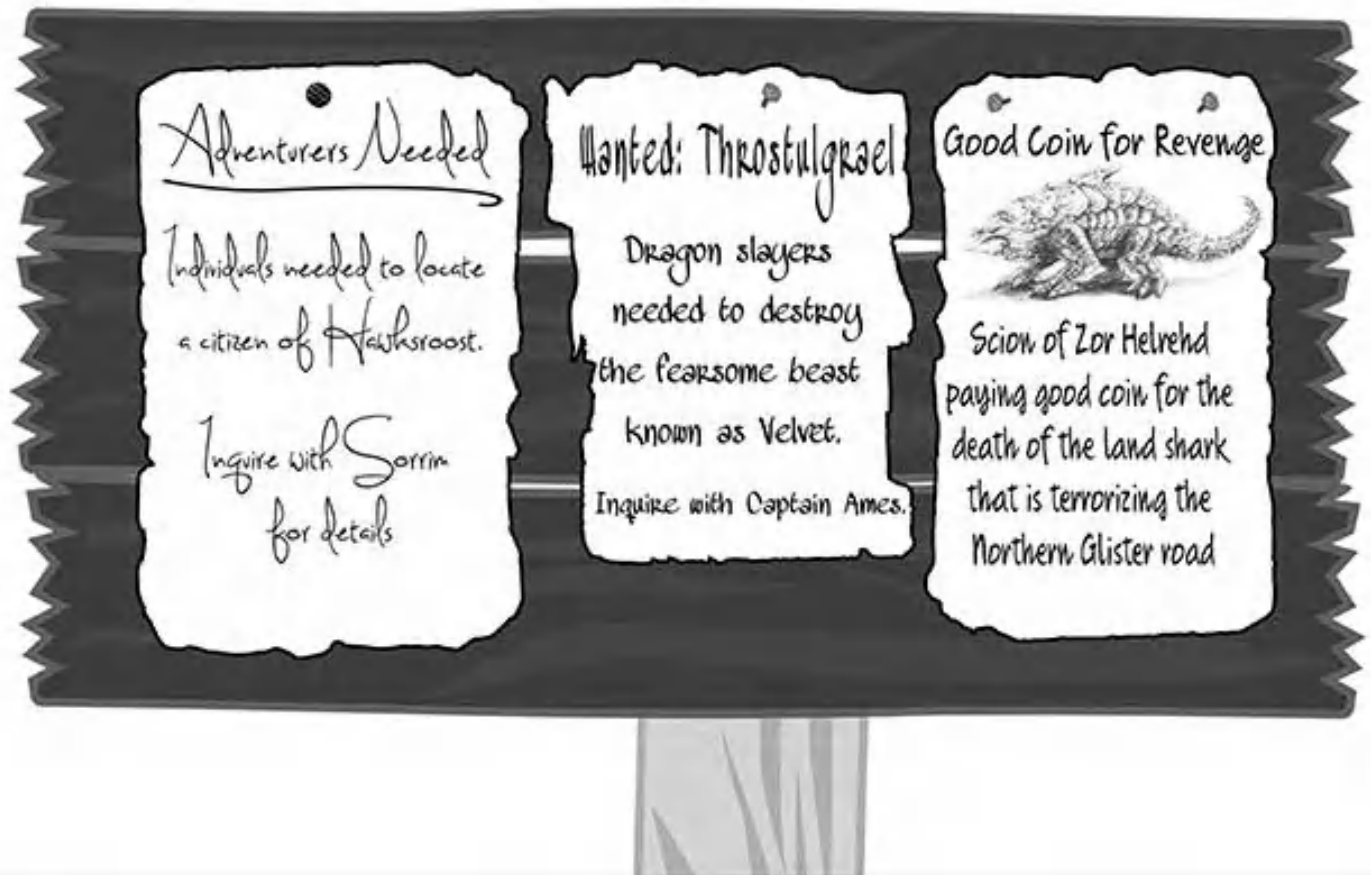 Adventurers Needed
Individuals needed to locate
a citizen of Hawksroost.
Inquire with Sorrim
for details
Wanted: Throstulgrael
Dragon slayers
needed to destroy
the fearsome beast
known as Velvet.
Inquire with Captain Ames.
Good Coin for Revenge
Scion of Zor Helrehd
paying good coin for the
death of the land shark
that is terrorizing the
Northern Glister road